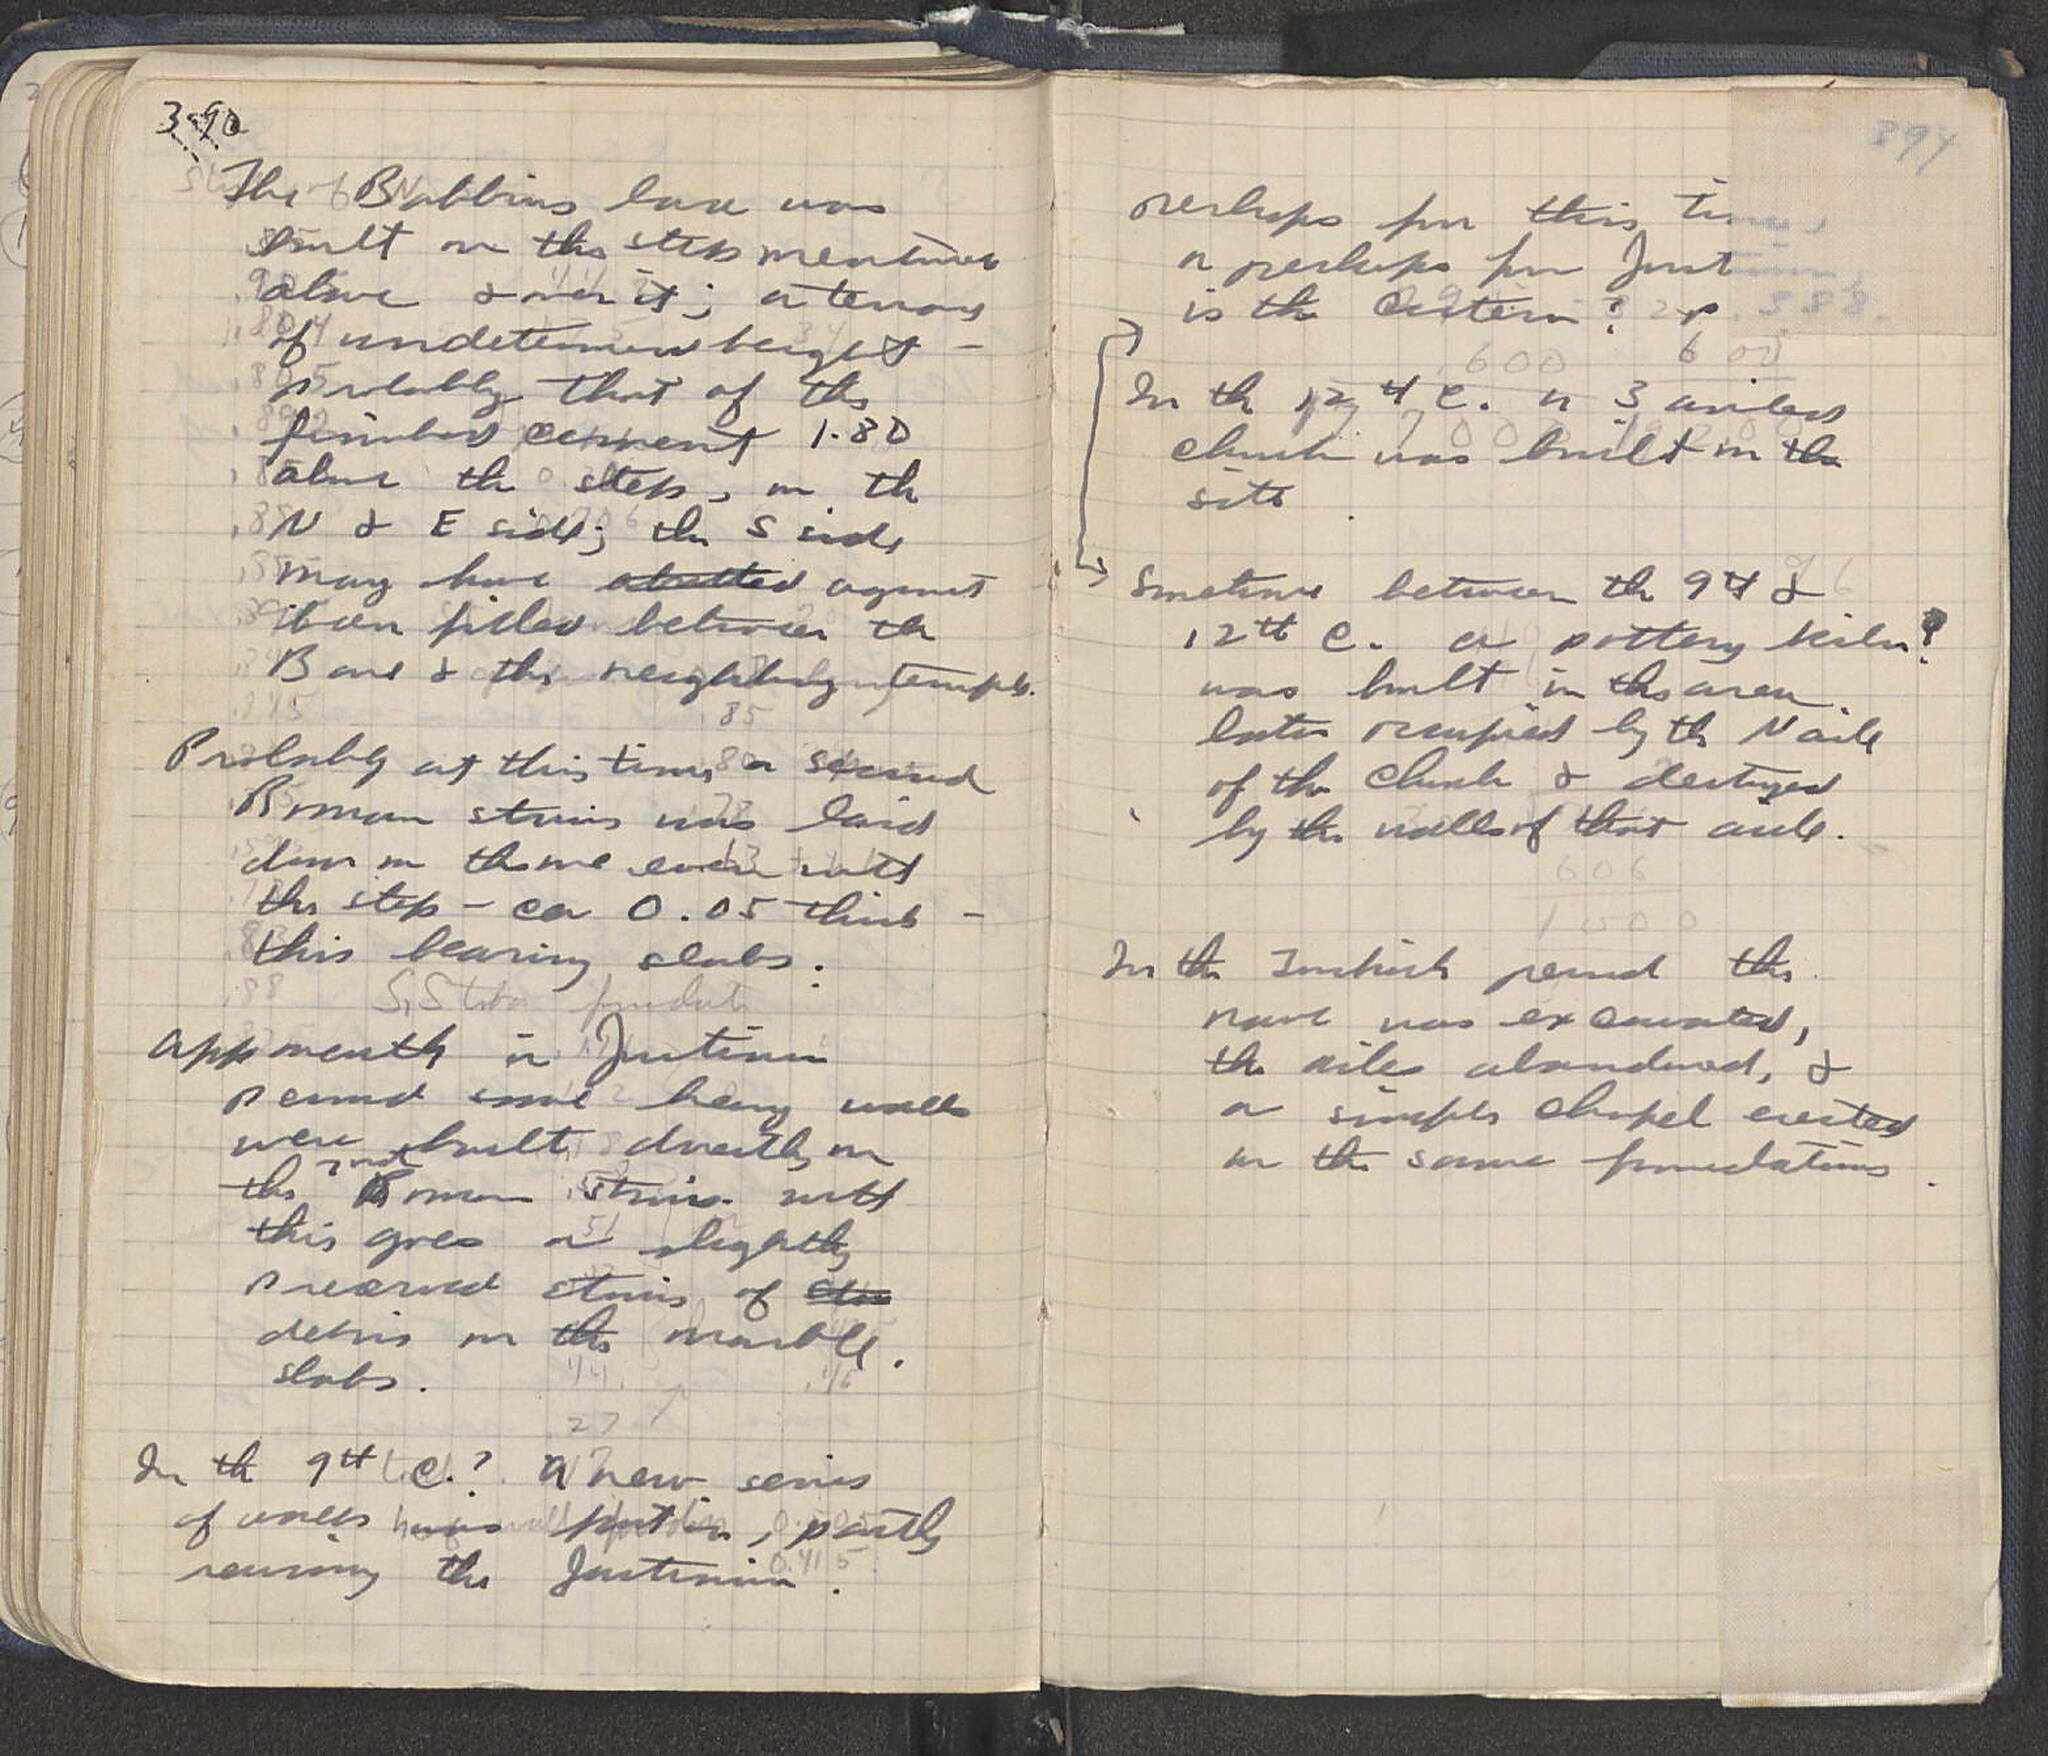 390
The Babbius base was
built on the step mentioned
above & over it; a terrace
of undetermined height –
probably that of the
finished cement 1.80
above the steps, on the
N & E side; the S side
may have abutted against
it or filled between the
Base & the neighboring temple.
Probably at this time a second
Roman stairs was laid
down on the one even with
the step – ca 0.05 thick –
this bearing slabs.
Apparently in Justinian
period some heavy walls
were built directly on
the 2nd Roman stairs. With
this goes a slightly
preserved stairs of
debris on the marble
slabs.
In the 9th C.? a new series
of walls was put in, partly
reusing the Justinian.
394
perhaps for this time,
or perhaps for Justinian,
is the cistern? p. 388.
In the 12th C. a 3 aisled
church was built on the
site.
Sometime between the 9th &
12th C. a pottery kiln?
was built in the area
later occupied by the N aisle
of the church & destroyed
by the walls of that aisle.
In the Turkish period the
nave was excavated,
the aisles abandoned, &
a simple chapel erected
on the same foundations.